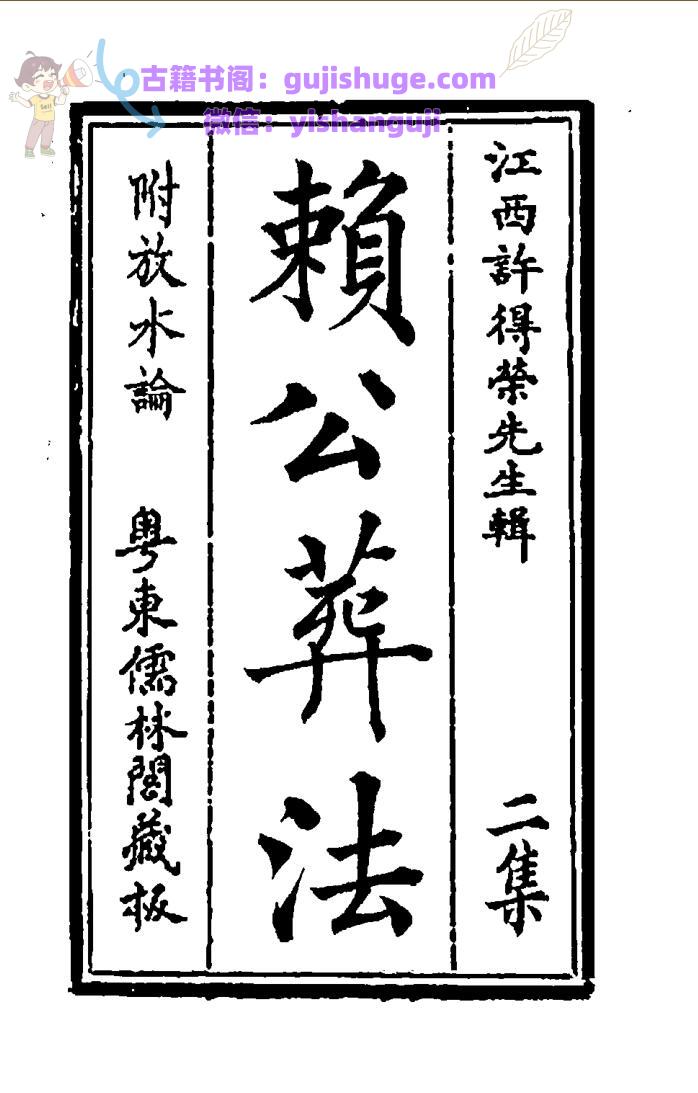 古籍书阁：gujishuge.com
微信：yishanguji
江西許得榮先生輯 二集
賴公葬法
附放水論 粵東儒林閣藏板